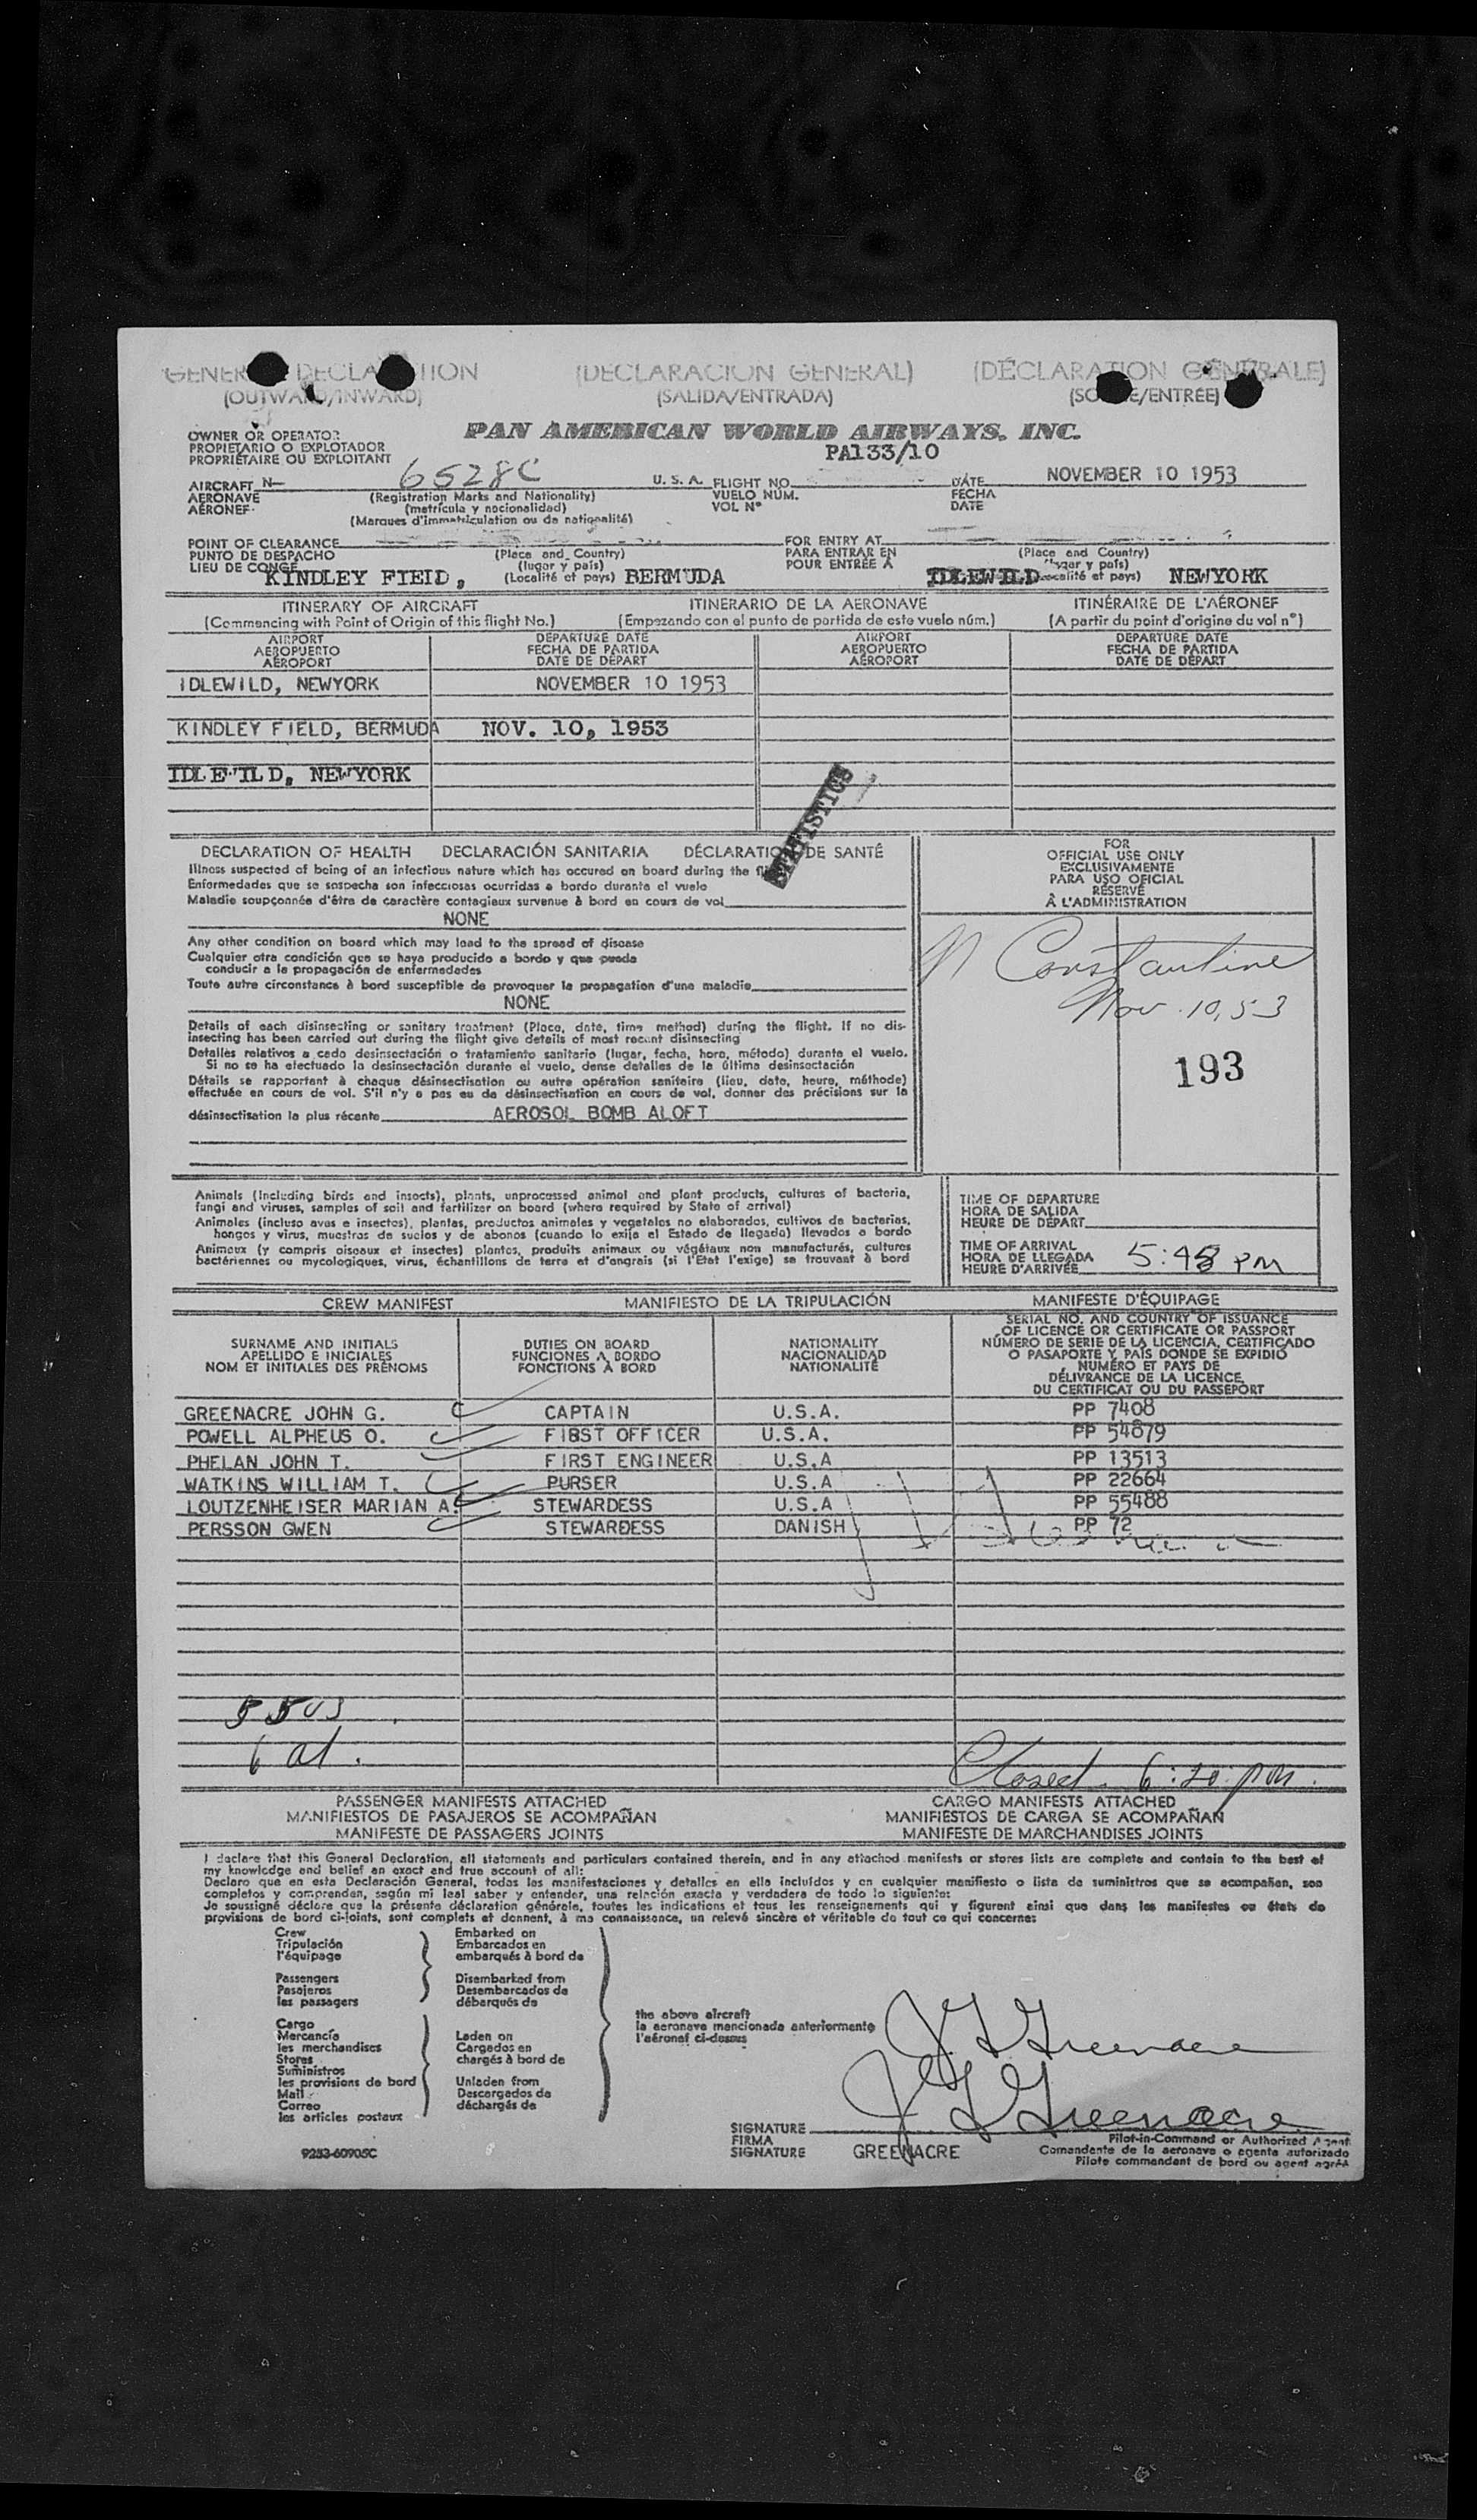 GENERAL DECLARATION (DECLARACION GENERAL) (DÉCLARATION GÉNÉRALE)
(OUTWARD/INWARD) (SALIDA/ENTRADA) (SORTIE/ENTRÉE)
OWNER OR OPERATOR PAN AMERICAN WORLD AIRWAYS, INC.
PROPIETARIO O EXPLOTADOR
PROPRIÉTAIRE OU EXPLOITANT PA133/10
AIRCRAFT N— 6528C U. S. A. FLIGHT NO. DATE NOVEMBER 10 1953
AERONAVE (Registration Marks and Nationality) VUELO NÚM. FECHA
AÉRONEF (matrícula y nacionalidad) VOL N° DATE
(Marques d'immatriculation ou de nationalité)
POINT OF CLEARANCE FOR ENTRY AT
PUNTO DE DESPACHO (Place and Country) PARA ENTRAR EN (Place and Country)
LIEU DE CONGÉ (lugar y país) POUR ENTRÉE À (lugar y país)
KINDLEY FIEID, (Localité et pays) BERMUDA IDLEWILD (Localité et pays) NEWYORK
ITINERARY OF AIRCRAFT ITINERARIO DE LA AERONAVE ITINÉRAIRE DE L'AÉRONEF
(Commencing with Point of Origin of this flight No.) (Empezando con el punto de partida de este vuelo núm.) (A partir du point d'origine du vol n°)
AIRPORT DEPARTURE DATE AIRPORT DEPARTURE DATE
AEROPUERTO FECHA DE PARTIDA AEROPUERTO FECHA DE PARTIDA
AÉROPORT DATE DE DÉPART AÉROPORT DATE DE DÉPART
IDLEWILD, NEWYORK NOVEMBER 10 1953
KINDLEY FIELD, BERMUDA NOV. 10, 1953
IDLEWILD, NEWYORK
STATISTICS
DECLARATION OF HEALTH DECLARACIÓN SANITARIA DÉCLARATION DE SANTÉ
Illness suspected of being of an infectious nature which has occured on board during the
Enfermedades que se sospecha son infecciosas ocurridas a bordo durante el vuelo
Maladie soupçonnée d'être de caractère contagieux survenue à bord en cours de vol
NONE
Any other condition on board which may lead to the spread of disease
Cualquier otra condición que se haya producido a bordo y que pueda
conducir a la propagación de enfermedades
Toute autre circonstance à bord susceptible de provoquer la propagation d'une maladie
NONE
Details of each disinsecting or sanitary treatment (Place, date, time method) during the flight. If no dis-
insecting has been carried out during the flight give details of most recent disinsecting
Detalles relativos a cada desinsectación o tratamiento sanitario (lugar, fecha, hora, método) durante el vuelo.
Si no se ha efectuado la desinsectación durante el vuelo, dense detalles de la última desinsectación
Détails se rapportant à chaque désinsectisation ou autre opération sanitaire (lieu, date, heure, méthode)
effectuée en cours de vol. S'il n'y a pas eu de désinsectisation en cours de vol, donner des précisions sur la
désinsectisation la plus récente AEROSOL BOMB ALOFT
FOR
OFFICIAL USE ONLY
EXCLUSIVAMENTE
PARA USO OFICIAL
RÉSERVÉ
À L'ADMINISTRATION
N Constantine
Nov. 10, 53
193
Animals (Including birds and insects), plants, unprocessed animal and plant products, cultures of bacteria,
fungi and viruses, samples of soil and fertilizer on board (where required by State of arrival)
Animales (incluso aves e insectos), plantas, productos animales y vegetales no elaborados, cultivos de bacterias,
hongos y virus, muestras de suelos y de abonos (cuando lo exija el Estado de llegada) llevados a bordo
Animaux (y compris oiseaux et insectes) plantes, produits animaux ou végétaux non manufacturés, cultures
bactériennes ou mycologiques, virus, échantillons de terre et d'engrais (si l'Etat l'exige) se trouvant à bord
TIME OF DEPARTURE
HORA DE SALIDA
HEURE DE DÉPART
TIME OF ARRIVAL
HORA DE LLEGADA 5:48 PM
HEURE D'ARRIVÉE
CREW MANIFEST MANIFIESTO DE LA TRIPULACIÓN MANIFESTE D'ÉQUIPAGE
SURNAME AND INITIALS DUTIES ON BOARD NATIONALITY
APELLIDO E INICIALES FUNCIONES A BORDO NACIONALIDAD
NOM ET INITIALES DES PRÉNOMS FONCTIONS À BORD NATIONALITÉ
SERIAL NO. AND COUNTRY OF ISSUANCE
OF LICENCE OR CERTIFICATE OR PASSPORT
NÚMERO DE SERIE DE LA LICENCIA, CERTIFICADO
O PASAPORTE Y PAÍS DONDE SE EXPIDIÓ
NUMÉRO ET PAYS DE
DÉLIVRANCE DE LA LICENCE,
DU CERTIFICAT OU DU PASSEPORT
GREENACRE JOHN G. CAPTAIN U.S.A. PP 7408
POWELL ALPHEUS O. FIRST OFFICER U.S.A. PP 54879
PHELAN JOHN T. FIRST ENGINEER U.S.A PP 13513
WATKINS WILLIAM T. PURSER U.S.A PP 22664
LOUTZENHEISER MARIAN A. STEWARDESS U.S.A PP 55488
PERSSON GWEN STEWARDESS DANISH PP 72
Closed. 6:20 pm.
PASSENGER MANIFESTS ATTACHED CARGO MANIFESTS ATTACHED
MANIFIESTOS DE PASAJEROS SE ACOMPAÑAN MANIFIESTOS DE CARGA SE ACOMPAÑAN
MANIFESTE DE PASSAGERS JOINTS MANIFESTE DE MARCHANDISES JOINTS
I declare that this General Declaration, all statements and particulars contained therein, and in any attached manifests or stores lists are complete and contain to the best of
my knowledge and belief an exact and true account of all:
Declaro que en esta Declaración General, todas las manifestaciones y detalles en ella incluídos y en cualquier manifiesto o lista de suministros que se acompañan, son
completos y comprenden, según mi leal saber y entender, una relación exacta y verdadera de todo lo siguiente:
Je soussigné déclare que la présente déclaration générale, toutes les indications et tous les renseignements qui y figurent ainsi que dans les manifestes ou états de
provisions de bord ci-joints, sont complets et donnent, à ma connaissance, un relevé sincère et véritable de tout ce qui concerne:
Crew Embarked on
Tripulación Embarcados en
l'équipage embarqués à bord de
Passengers Disembarked from
Pasajeros Desembarcados de
les passagers débarqués de
the above aircraft
la aeronave mencionada anteriormente
l'aéronef ci-dessus
Cargo
Mercancía Laden on
les merchandises Cargados en
Stores chargés à bord de
Suministros
les provisions de bord Unladen from
Mail Descargados de
Correo déchargés de
les articles postaux
J G Greenacre
J G Greenacre
SIGNATURE Pilot-in-Command or Authorized Agent
FIRMA Comandante de la aeronave o agente autorizado
SIGNATURE GREENACRE Pilote commandant de bord ou agent agréé
9253-60905C